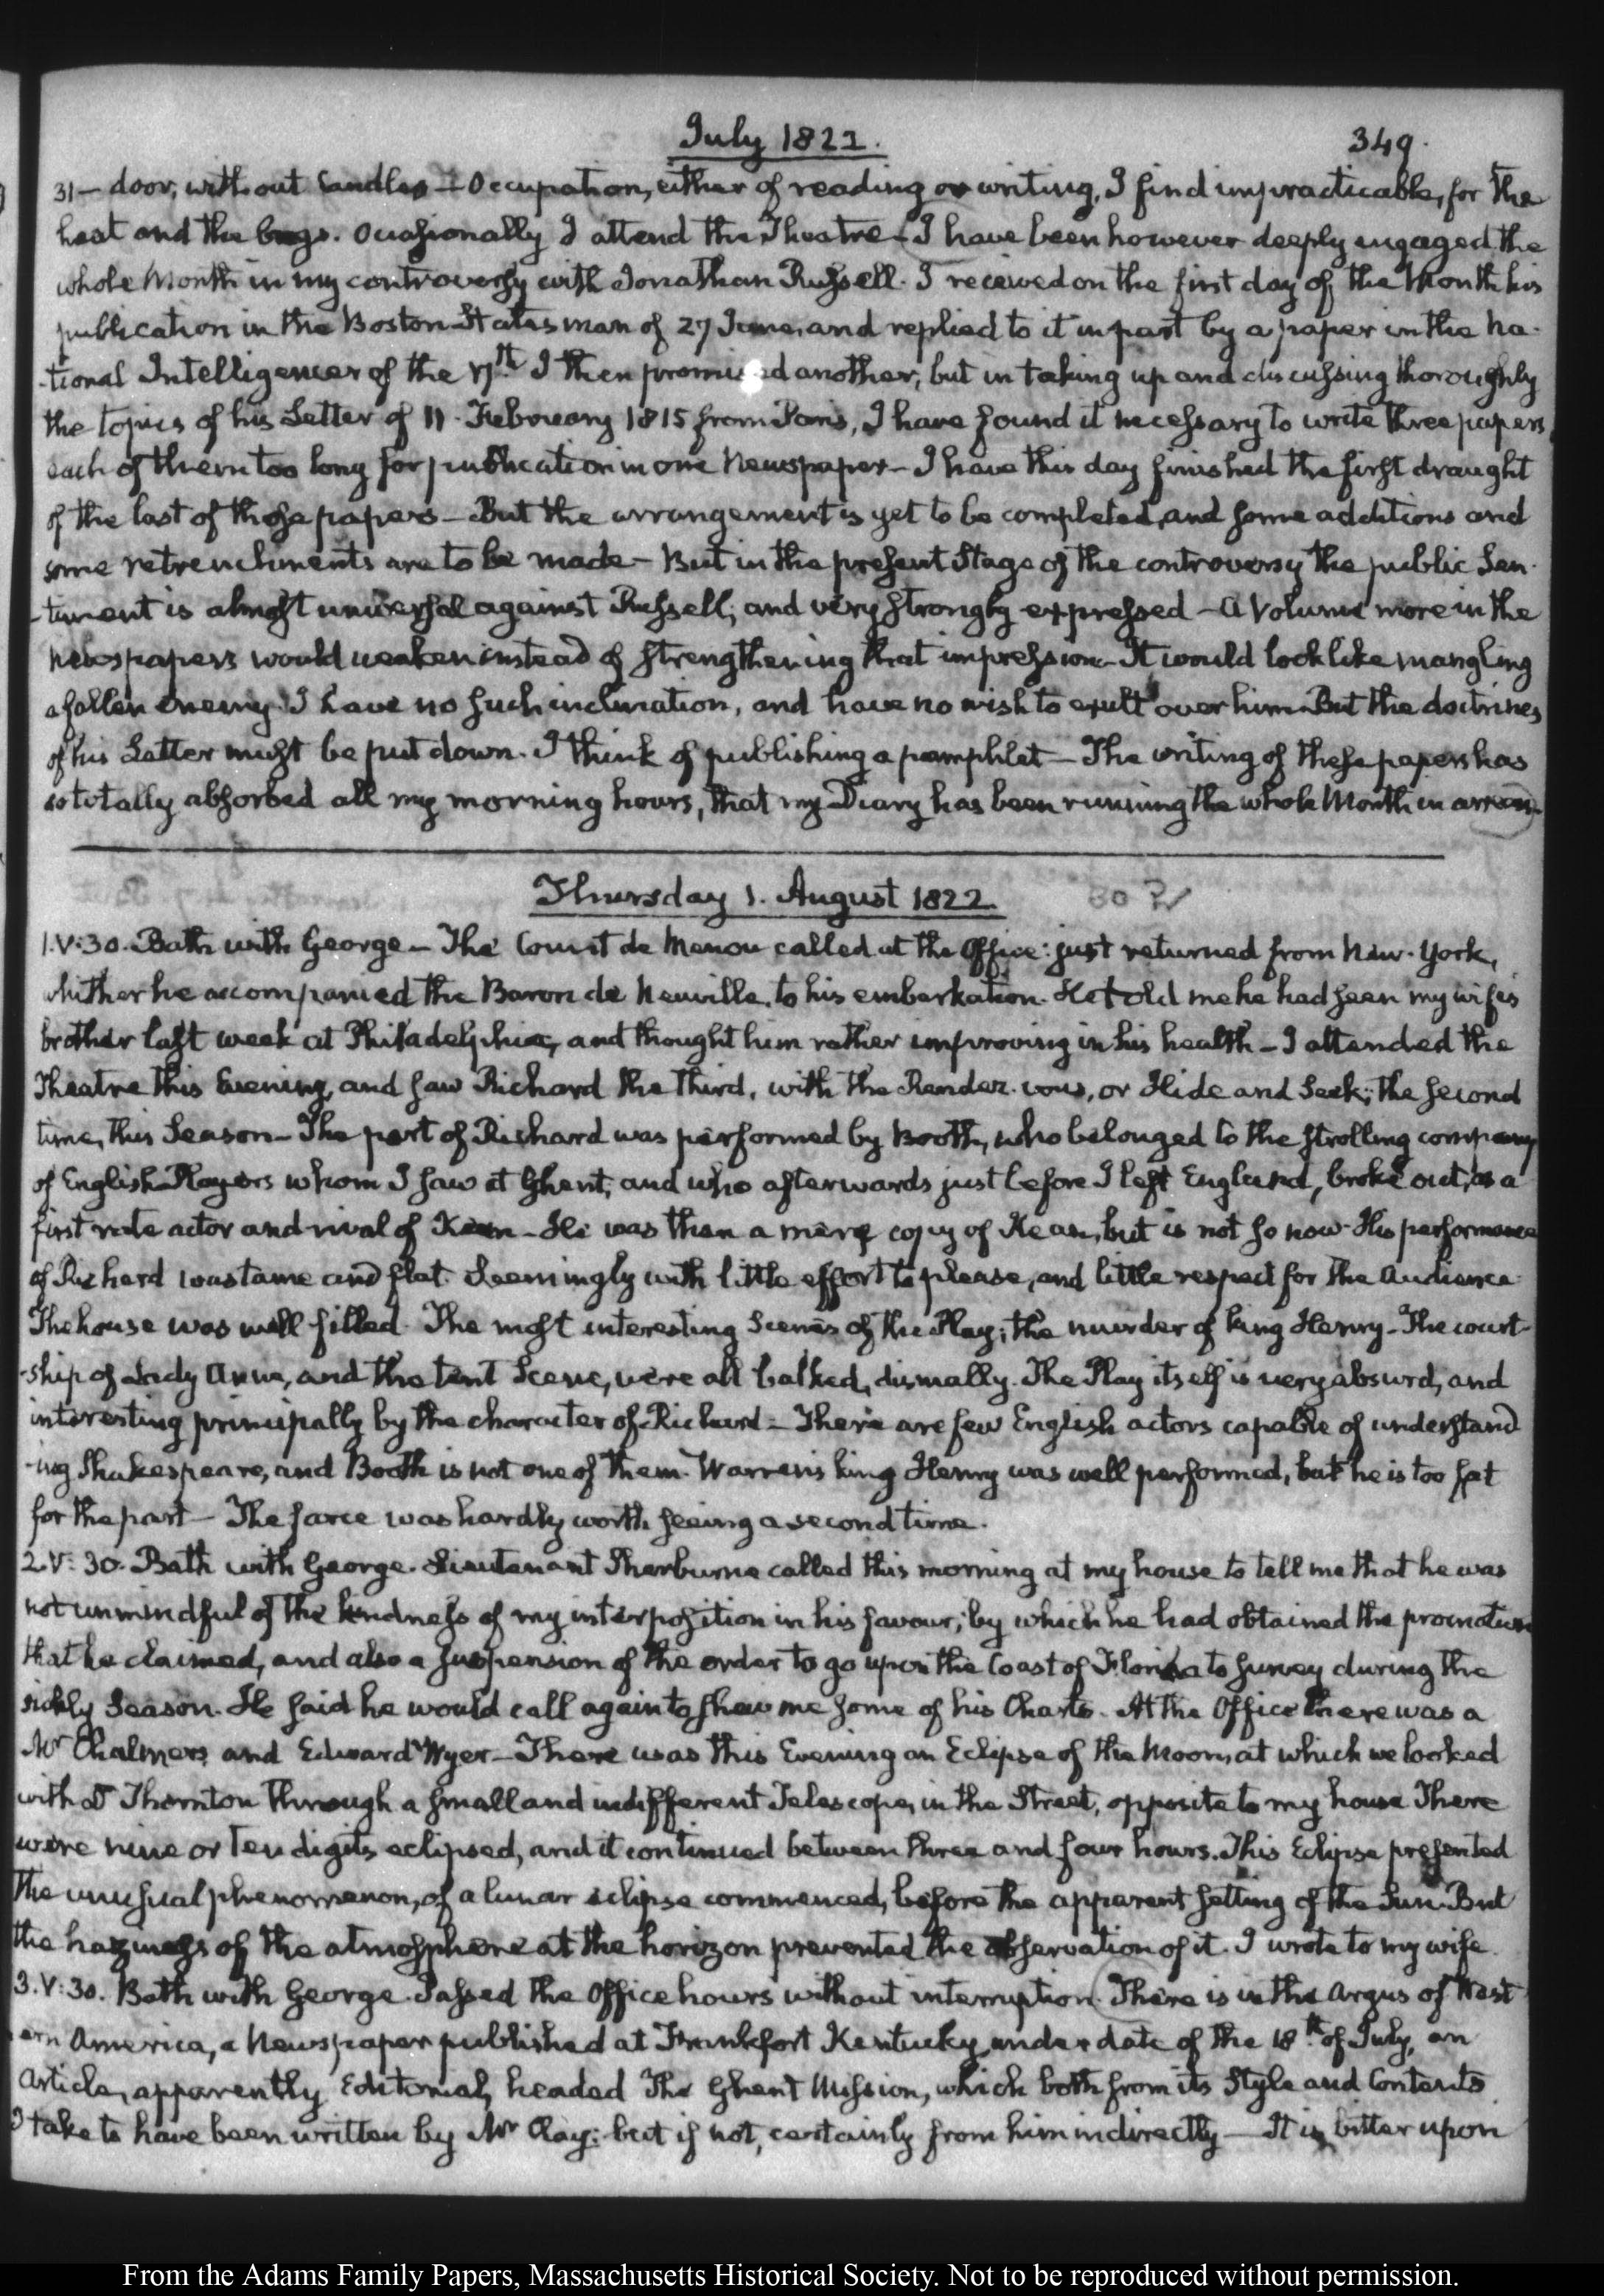 July 1822.
349.
31 — door, without Candles — Occupation, either of reading or writing, I find impracticable, for the
heat and the bugs. Occasionally I attend the Theatre — I have been however deeply engaged the
whole Month in my controversy with Jonathan Russell. I received on the first day of the Month his
publication in the Boston Statesman of 27 June, and replied to it in part by a paper in the Na-
-tional Intelligencer of the 17th. I then promised another, but in taking up and discussing thoroughly
the topics of his Letter of 11. February 1815 from Paris, I have found it necessary to write three papers
each of them too long for publication in one Newspaper — I have this day finished the first draught
of the last of those papers — But the arrangement is yet to be completed, and some additions and
some retrenchments are to be made — But in the present Stage of the controversy the public Sen-
-timent is almost universal against Russell, and very strongly expressed — A Volume more in the
Newspapers would weaken instead of strengthening that impression — It would look like mangling
a fallen enemy. I have no such inclination, and have no wish to exult over him — But the doctrines
of his Letter must be put down. I think of publishing a pamphlet — The writing of these papers has
so totally absorbed all my morning hours, that my Diary has been running the whole Month in arrear.
Thursday 1. August 1822.
1. V:30. Bath with George — The Count de Menou called at the Office: just returned from New-York,
whither he accompanied the Baron de Neuville, to his embarkation. He told me he had seen my wife's
brother last week at Philadelphia, and thought him rather improving in his health — I attended the
Theatre this Evening, and saw Richard the Third, with the Rendez-vous, or Hide and Seek; the second
time, this Season — The part of Richard was performed by Booth, who belonged to the strolling company
of English Players whom I saw at Ghent, and who afterwards just before I left England, broke out, as a
first rate actor and rival of Kean — He was then a mere copy of Kean, but is not so now. His performance
of Richard was tame and flat. Seemingly with little effort to please, and little respect for the Audience.
The house was well filled. The most interesting Scenes of the Play; the murder of king Henry — The court-
-ship of Lady Anne, and the tent Scene, were all balked, dismally. The Play itself is very absurd, and
interesting principally by the character of Richard — There are few English actors capable of understand
-ing Shakespeare, and Booth is not one of them. Warren's king Henry was well performed, but he is too fat
for the part — The farce was hardly worth seeing a second time.
2. V:30. Bath with George. Lieutenant Sherburne called this morning at my house to tell me that he was
not unmindful of the kindness of my interposition in his favour; by which he had obtained the promotion
that he claimed, and also a suspension of the order to go upon the Coast of Florida to survey during the
sickly Season. He said he would call again to shew me some of his Charts. At the Office there was a
Mr Chalmers and Edward Wyer — There was this Evening an Eclipse of the Moon, at which we looked
with Dr Thornton through a small and indifferent Telescope, in the Street, opposite to my house. There
were nine or ten digits eclipsed, and it continued between three and four hours. This Eclipse presented
the unusual phenomenon, of a lunar eclipse commenced, before the apparent setting of the Sun. But
the haziness of the atmosphere at the horizon prevented the observation of it. I wrote to my wife.
3. V:30. Bath with George. Passed the Office hours without interruption. There is in the Argus of West
ern America, a Newspaper published at Frankfort Kentucky, under date of the 18th of July, an
Article, apparently Editorial, headed The Ghent Mission, which both from its Style and Contents
I take to have been written by Mr Clay; but if not, certainly from him indirectly — It is bitter upon
From the Adams Family Papers, Massachusetts Historical Society. Not to be reproduced without permission.